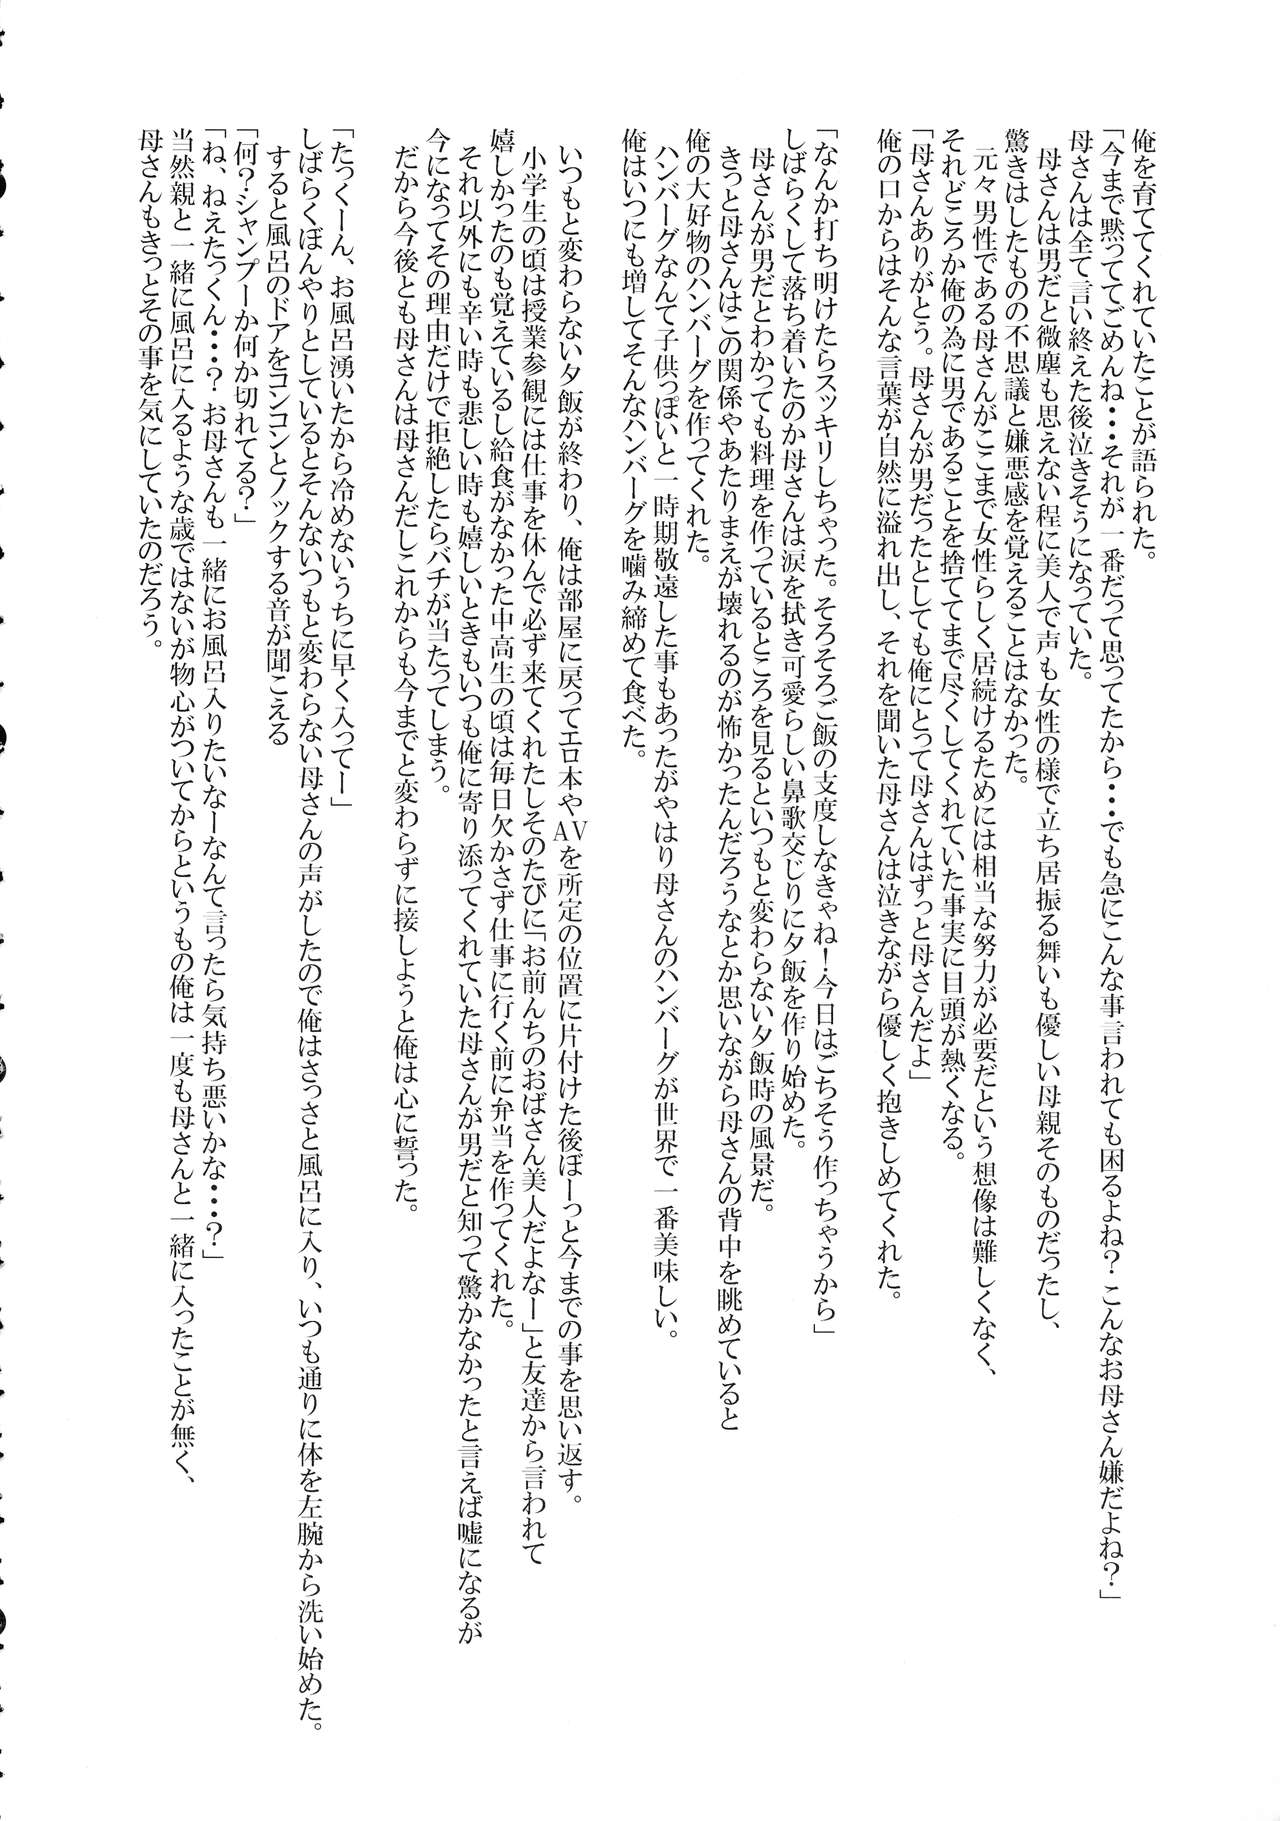 俺を育ててくれていたことが語られた。
「今まで黙っててごめんね・・・それが一番だって思ってたから・・・でも急にこんな事言われても困るよね？こんなお母さん嫌だよね？」
母さんは全て言い終えた後泣きそうになっていた。
母さんは男だと微塵も思えない程に美人で声も女性の様で立ち居振る舞いも優しい母親そのものだったし、
驚きはしたものの不思議と嫌悪感を覚えることはなかった。
元々男性である母さんがここまで女性らしく居続けるためには相当な努力が必要だという想像は難しくなく、
それどころか俺の為に男であることを捨ててまで尽くしてくれていた事実に目頭が熱くなる。
「母さんありがとう。母さんが男だったとしても俺にとって母さんはずっと母さんだよ」
俺の口からはそんな言葉が自然に溢れ出し、それを聞いた母さんは泣きながら優しく抱きしめてくれた。
「なんか打ち明けたらスッキリしちゃった。そろそろご飯の支度しなきゃね！今日はごちそう作っちゃうから」
しばらくして落ち着いたのか母さんは涙を拭き可愛らしい鼻歌交じりに夕飯を作り始めた。
母さんが男だとわかっても料理を作っているところを見るといつもと変わらない夕飯時の風景だ。
きっと母さんはこの関係やあたりまえが壊れるのが怖かったんだろうなとか思いながら母さんの背中を眺めていると
俺の大好物のハンバーグを作ってくれた。
ハンバーグなんて子供っぽいと一時期敬遠した事もあったがやはり母さんのハンバーグが世界で一番美味しい。
俺はいつにも増してそんなハンバーグを噛み締めて食べた。
いつもと変わらない夕飯が終わり、俺は部屋に戻ってエロ本やAVを所定の位置に片付けた後ぼーっと今までの事を思い返す。
小学生の頃は授業参観には仕事を休んで必ず来てくれたしそのたびに「お前んちのおばさん美人だよなー」と友達から言われて
嬉しかったのも覚えているし給食がなかった中高生の頃は毎日欠かさず仕事に行く前に弁当を作ってくれた。
それ以外にも辛い時も悲しい時も嬉しいときもいつも俺に寄り添ってくれていた母さんが男だと知って驚かなかったと言えば嘘になるが
今になってその理由だけで拒絶したらバチが当たってしまう。
だから今後とも母さんは母さんだしこれからも今までと変わらずに接しようと俺は心に誓った。
「たっくーん、お風呂湧いたから冷めないうちに早く入ってー」
しばらくぼんやりとしているとそんないつもと変わらない母さんの声がしたので俺はさっさと風呂に入り、いつも通りに体を左腕から洗い始めた。
すると風呂のドアをコンコンとノックする音が聞こえる
「何？シャンプーか何か切れてる？」
「ね、ねえたっくん・・・？お母さんも一緒にお風呂入りたいなーなんて言ったら気持ち悪いかな・・・？」
当然親と一緒に風呂に入るような歳ではないが物心がついてからというもの俺は一度も母さんと一緒に入ったことが無く、
母さんもきっとその事を気にしていたのだろう。